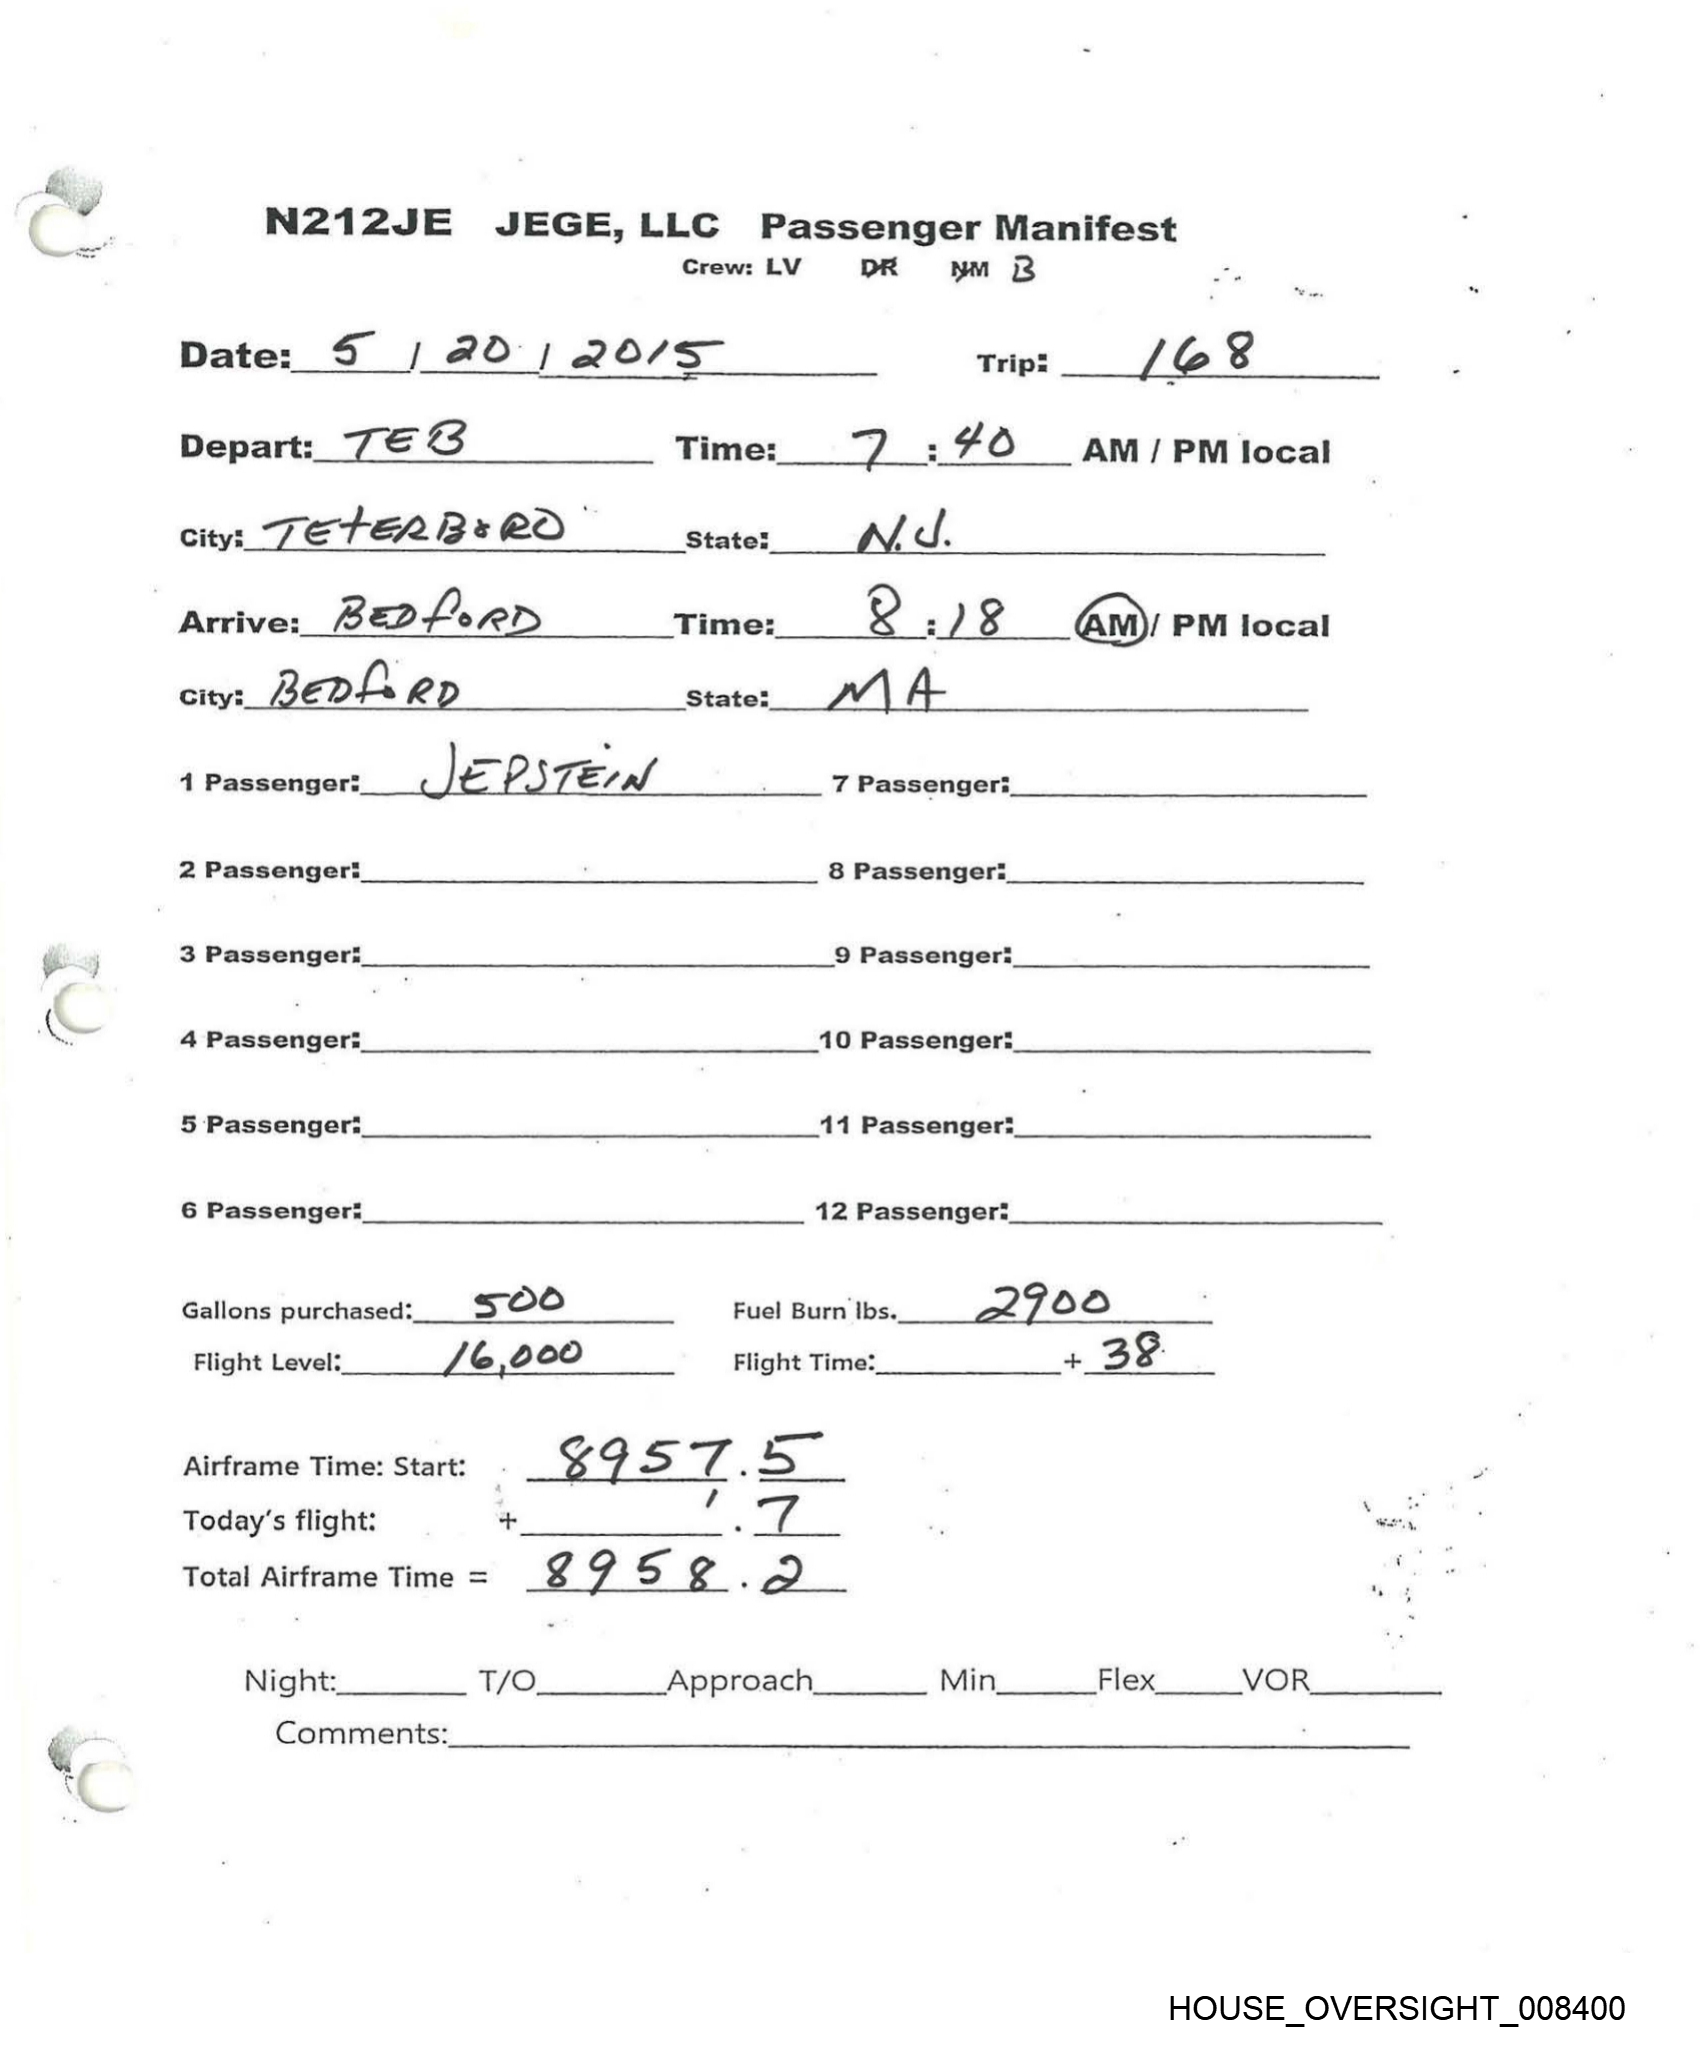 N212JE JEGE, LLC Passenger Manifest
Crew: LV DR NM B
Date: 5 / 20 / 2015 Trip: 168
Depart: TEB Time: 7 : 40 AM / PM local
City: TETERBORO State: N.J.
Arrive: BEDFORD Time: 8 : 18 AM / PM local
City: BEDFORD State: MA
1 Passenger: JEPSTEIN 7 Passenger:
2 Passenger: 8 Passenger:
3 Passenger: 9 Passenger:
4 Passenger: 10 Passenger:
5 Passenger: 11 Passenger:
6 Passenger: 12 Passenger:
Gallons purchased: 500 Fuel Burn lbs. 2900
Flight Level: 16,000 Flight Time: + 38
Airframe Time: Start: 8957.5
Today's flight: + .7
Total Airframe Time = 8958.2
Night: T/O Approach Min Flex VOR
Comments:
HOUSE_OVERSIGHT_008400